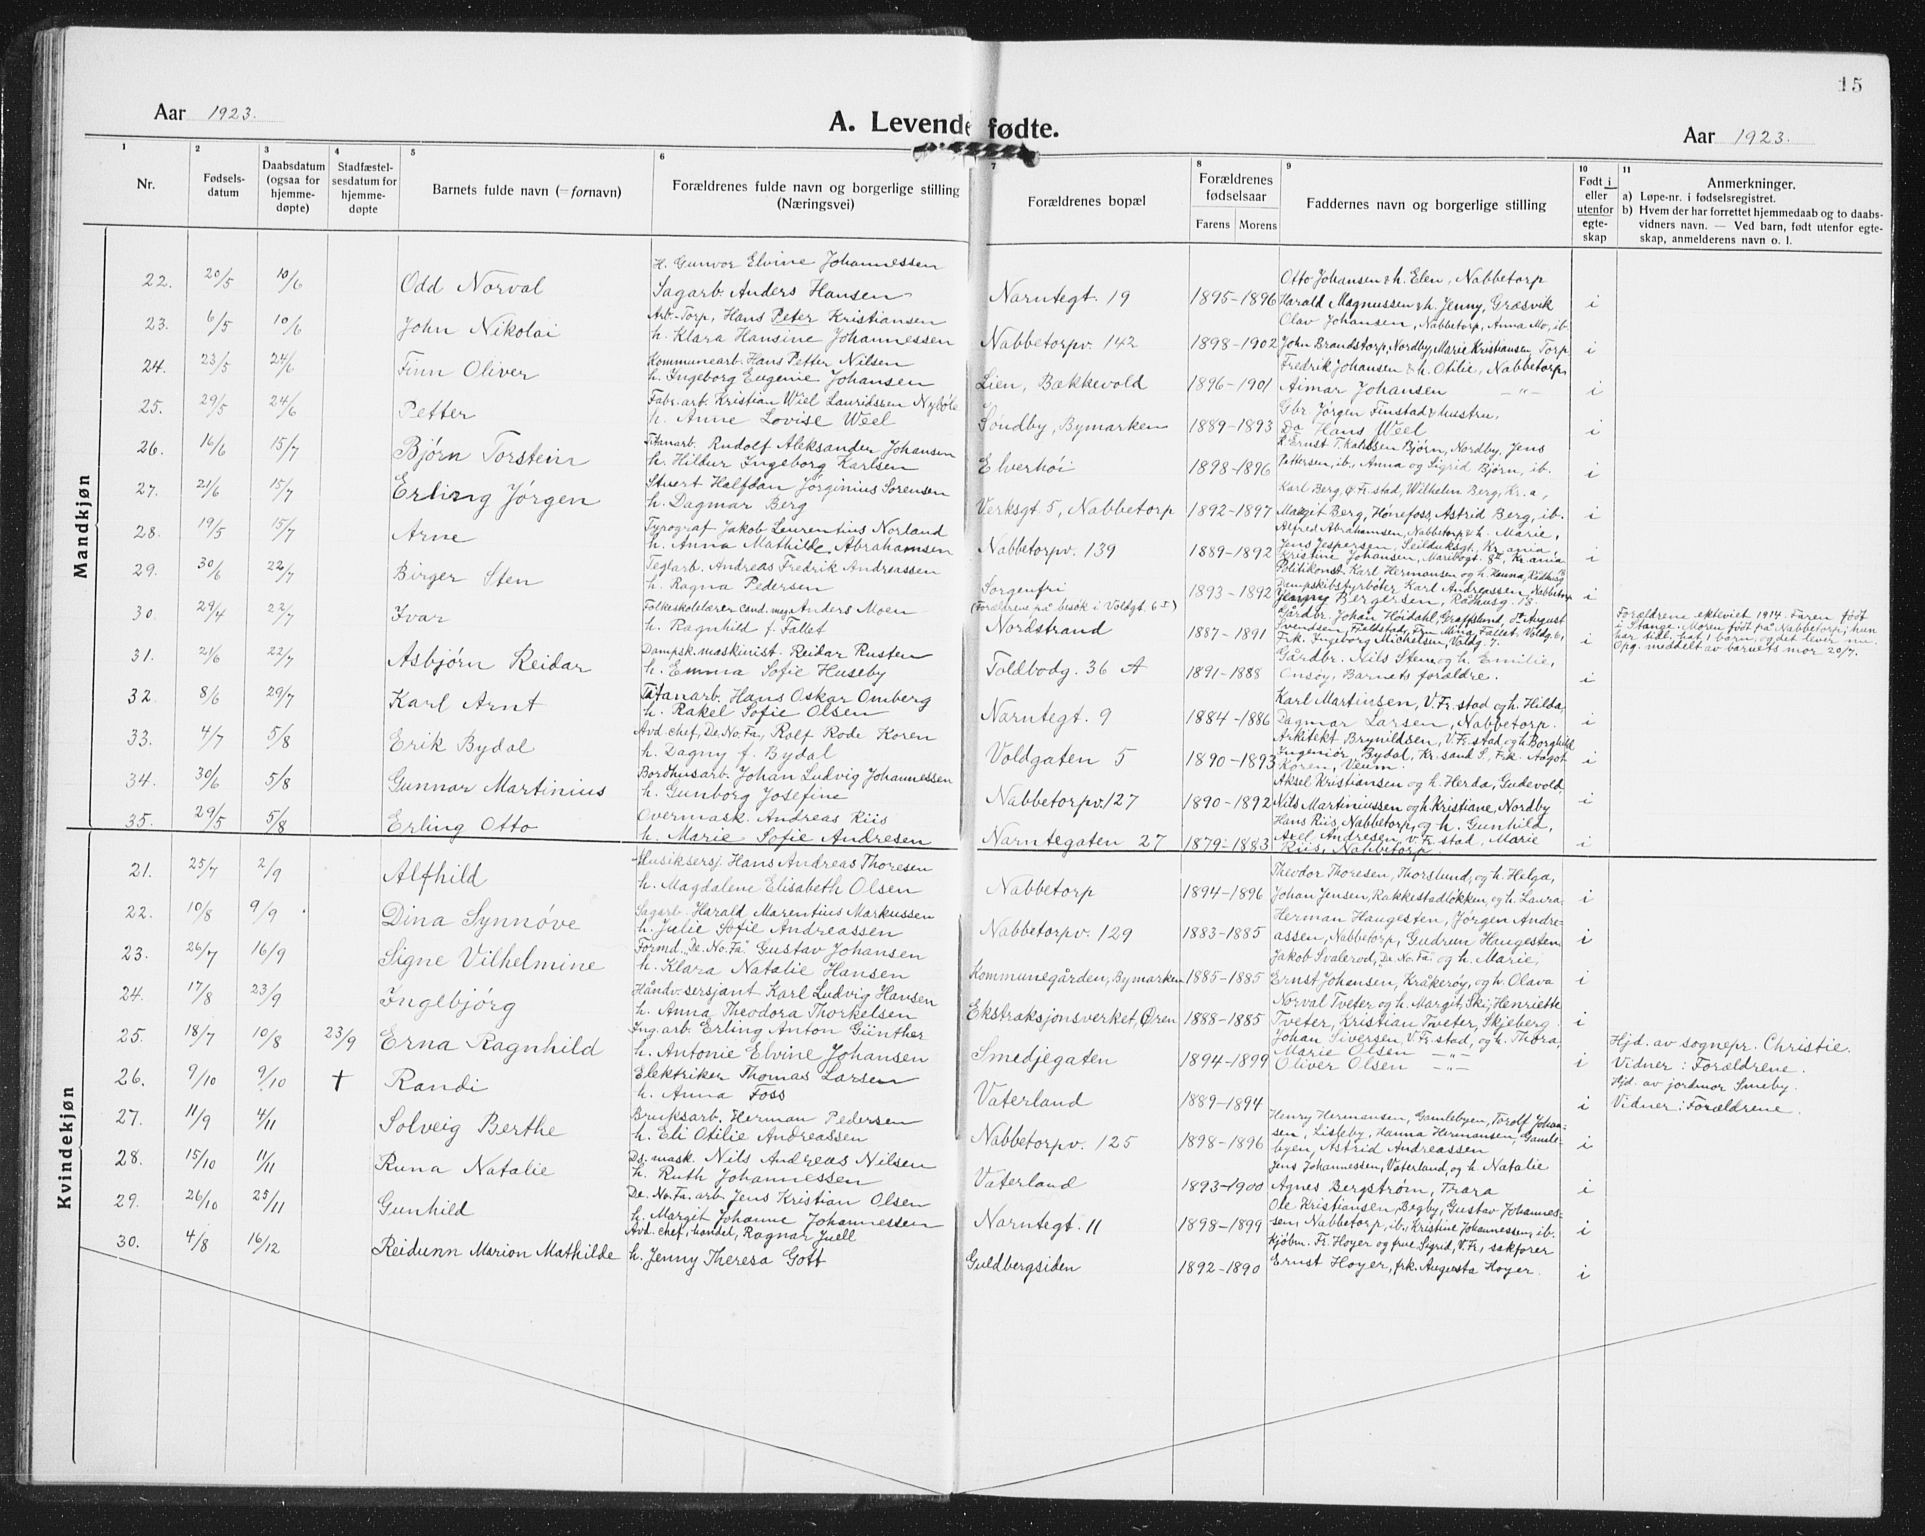 15
Aar 1923.
A. Levende fødte.
Aar 1923.
1 2 3 4 5 6 7 8 9 10 11
Nr.
Fødsels-
datum
Daabsdatum
(ogsaa for
hjemme-
døpte)
Stadfæstel-
sesdatum for
hjemme-
døpte
Barnets fulde navn (= fornavn)
Forældrenes fulde navn og borgerlige stilling
(Næringsvei)
Forældrenes bopæl
Forældrenes
fødselsaar
Farens Morens
Faddernes navn og borgerlige stilling
Født i
eller
utenfor
egte-
skap
Anmerkninger.
a) Løpe-nr. i fødselsregistret.
b) Hvem der har forrettet hjemmedaab og to daabs-
vidners navn. — Ved barn, født utenfor egte-
skap, anmelderens navn o. l.
Mandkjøn
H. Gunvor Elvine Johannessen
22. 20/5 10/6 Odd Norval
Sagarb. Anders Hansen
Narntegt. 19 1895-1896
Otto Johansen & h. Elen, Nabbetorp
Harald Magnussen & h. Jenny, Græsvik
i
23. 6/5 10/6 John Nikolai
Arb. Torp, Hans Peter Kristiansen
h. Klara Hansine Johannessen
Nabbetorpv. 142 1898-1902
Olav Johansen, Nabbetorp, Anna Mo, ib.
John Brandstorp, Nordby, Marie Kristiansen, Torp
i
24. 23/5 24/6 Finn Oliver
Kommunearb. Hans Petter Nilsen
h. Ingeborg Eugenie Johansen
Lien, Bækkevold 1896-1901
Fredrik Johansen & h. Otilie, Nabbetorp,
Aimar Johansen -"-
i
25. 29/5 24/6 Petter
Fabr. arb. Kristian Wiel Lauridssen Nybøle
h. Anne Lovise Weel
Sondby, Bymarken 1889-1893
Gbr. Jørgen Finstad & hustru,
Do Hans Weel
i
26. 16/6 15/7 Bjørn Torstein
Titanarb. Rudolf Aleksander Johansen
h. Hilbur Ingeborg Karlsen
Elverhøi 1898-1896
Ernst T. Karlssen Bjørn, Nordby, Jens
Pettersen, ib., Anna og Sigrid Bjørn, ib.
i
27. 21/6 15/7 Erling Jørgen
Stuert Halfdan Jørginius Sørensen
h. Dagmar Berg
Verksgt 5, Nabbetorp 1892-1897
Karl Berg, Ø. Fr.stad, Wilhelm Berg, Kr.a,
Margit Berg, Hønefoss, Astrid Berg, ib.
i
28. 19/5 15/7 Arne
Typograf Jakob Laurentius Norland
h. Anna Mathilde Abrahamsen
Nabbetorpv. 139 1889-1892
Alfred Abrahamsen, Nabbetorp & h. Marie,
Jens Jespersen, Seilduksgt., Kr.ania,
Kristine Johansen, Maribogt. 8II, Kr.ania
i
29. 30/6 22/7 Birger Sten
Teglarb. Andreas Fredrik Andreassen
h. Ragna Pedersen
Sorgenfri 1893-1892
Politikonst. Karl Hermansen og h. Hanna, Raadhusg. 18
Dampskibstyrbøter Karl Andreassen, Nabbetorp
Georg Bergersen, Rådhusg. 18.
i
30. 29/4 22/7 Ivar
Folkeskolelærer cand. mag. Anders Moen
h. Ragnhild f. Fallet
(Forældrene på besøk i Voldgt. 6 I)
Nordstrand 1887-1891
Gårdbr. Johan Høidahl, Graffslund, Do August
Svendsen, Fjeldstad, Fru Mina Fallet, Voldg. 6,
Frk. Ingeborg Michelsen, Voldg. 7.
i
Forældrene ekteviet 1914. Faren født
i Stange. Moren født på Nabbetorp, hun
har tidl. hat 1 barn, og det lever nu.
Opg. meddelt av barnets mor 20/7.
31. 21/6 22/7 Asbjørn Reidar
Dampsk. maskinist. Reidar Rusten
h. Emma Sofie Huseby
Toldbodg. 36 A 1891-1888
Gårdbr. Nils Sten og h. Emilie,
Onsøy, Barnets forældre.
i
32. 8/6 29/7 Karl Arnt
Titanarb. Hans Oskar Omberg
h. Rakel Sofie Olsen
Narntegt. 9 1884-1886
Karl Martinsen, V. Fr.stad og h. Hilda,
Dagmar Larsen, Nabbetorp.
i
33. 4/7 5/8 Erik Bydal
Avd. chef, De No. Fa., Rolf Rode Koren
h. Dagny f. Bydal
Voldgaten 5 1890-1893
Arkitekt Brynildsen, V. Fr.stad og h. Borghild
Ingeniør Bydal, Kr.sand S, Frk. Aagot
Koren, Veum.
i
34. 30/6 5/8 Gunnar Martinius
Bordhusarb. Johan Ludvig Johannessen
h. Gunborg Josefine
Nabbetorpv. 127 1890-1892
Aksel Kristiansen og h. Herda, Gudevold,
Nils Martiniussen og h. Kristiane, Nordby
i
35. 29/5 5/8 Erling Otto
Overmask. Andreas Riis
h. Marie Sofie Andresen
Narntegaten 27 1879-1883
Hans Riis, Nabbetorp, og h. Gunhild,
Axel Andresen, V. Fr.stad, Marie
Riis, Nabbetorp.
i
Kvindekjøn
21. 25/7 2/9 Alfhild
Musiksersj. Hans Andreas Thoresen
h. Magdalene Elisabeth Olsen
Nabbetorp 1894-1896
Theodor Thoresen, Thorslund, og h. Helga,
Johan Jensen, Rakkestadløkken, og h. Laura
i
22. 10/8 9/9 Dina Synnøve
Sagarb. Harald Marentius Markussen
h. Julie Sofie Andreassen
Nabbetorpv. 129 1883-1885
Herman Haugesten, Jørgen Andre-
assen, Nabbetorp, Gudrun Haugesten
i
23. 26/7 16/9 Signe Vilhelmine
Formd. "De No. Fa" Gustav Johansen
h. Klara Natalie Hansen
Kommunegården, Bymarken 1885-1885
Jakob Svalerod, "De No. Fa" og h. Marie,
Ernst Johansen, Kråkerøy, og h. Olava
i
24. 17/8 23/9 Ingebjørg
Håndv. sersjant Karl Ludvig Hansen
h. Anna Theodora Thorkelsen
Ekstraksjonsverket, Øren 1888-1885
Norval Tveter og h. Margit, Ski; Henriette
Tveter, Kristian Tveter, Skjeberg.
i
25. 18/7 10/8 23/9 Erna Ragnhild
Ing. arb. Erling Anton Günther
h. Antonie Elvine Johansen
Smedjegaten 1894-1899
Johan Siversen, V. Fr.stad, og h. Thora,
Marie Olsen -"-
Oliver Olsen -"-
i
Hjd. av sognepr. Christie.
Vidner: Forældrene.
26. 9/10 9/10 † Randi
Elektriker Thomas Larsen
h. Anna Foss
Vaterland 1889-1894
i
Hjd. av jordmor Smeby.
Vidner: Forældrene.
27. 11/9 4/11 Solveig Berthe
Bruksarb. Herman Pedersen
h. Eli Otilie Andreassen
Nabbetorpv. 125 1898-1896
Henry Hermansen, Gamlebyen, Torolf Johan-
sen, Lisleby, Hanna Hermansen, Gamle-
byen, Astrid Andreassen
i
28. 15/10 11/11 Runa Natalie
Ds. mask. Nils Andreas Nilsen
h. Ruth Johannessen
Vaterland 1893-1900
Jens Johannessen, Vaterland, og h. Natalie
Agnes Bergstrøm, Trara
i
29. 26/10 25/11 Gunhild
De. No. Fa. arb. Jens Kristian Olsen
h. Margit Johanne Johannessen
Narntegt. 11 1898-1899
Ole Kristiansen, Begby, Gustav Johannes-
sen, Nabbetorp, ib., Kristine Johannessen, ib.
i
30. 4/8 16/12 Reidunn Marion Mathilde
Avd. chef, handel, Ragnar Juell
h. Jenny Theresa Gott
Guldbergsiden 1892-1890
Kjøbm. Fr. Hoyer og frue Sigrid, V. Fr, sakfører
Ernst Hoyer, frk. Augusta Hoyer.
i